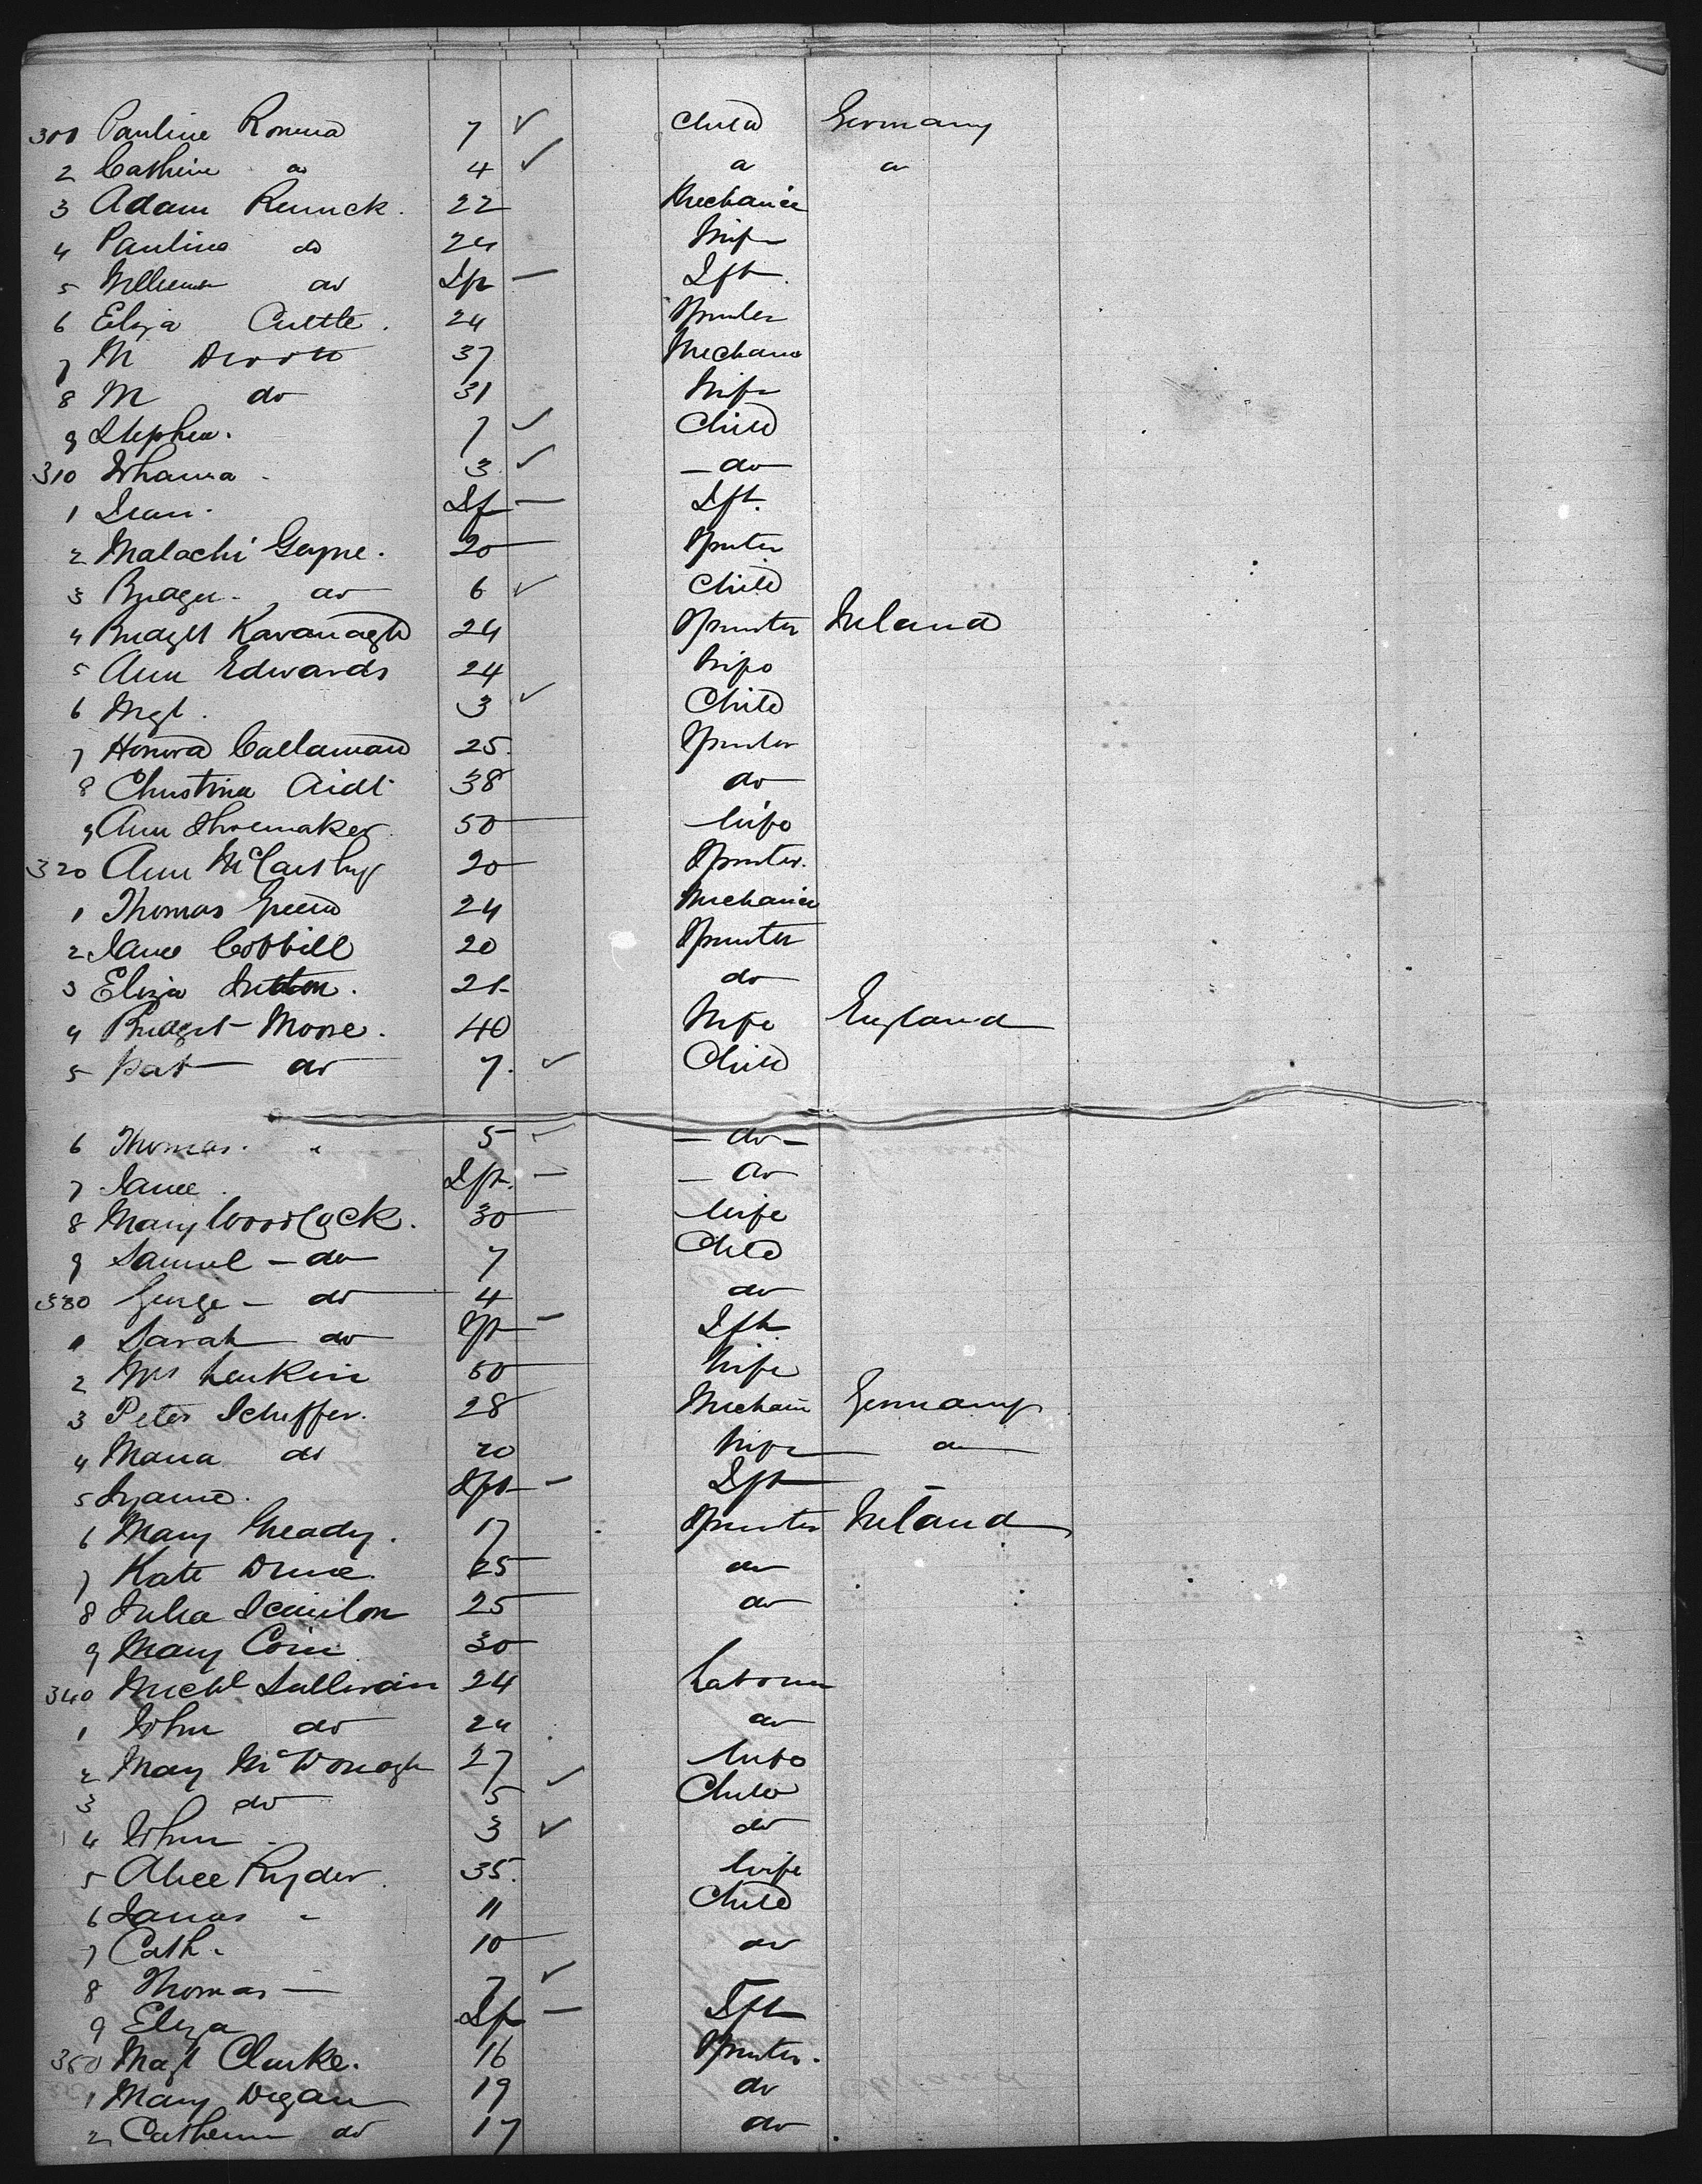 301 Pauline 7 ✓ Child Germany
2 Cathine do 4 ✓ do do
3 Adam Remick. 22 Mechanic
4 Paulina do 24 Wife
5 William do Ift — Ift.
6 Eliza Cuttle. 24 Spinster
7 M 37 Mechanic
8 M do 31 Wife
9 Stephen. 7 ✓ Child
310 Johanna. 3 ✓ — do
1 If — Ift.
2 Malachi 20 Spinster
3 Bridget. do 6 ✓ Child
4 Bridget Kavanagh 24 Spinster Ireland
5 Ann Edwards 24 Wife
6 Mgt. 3 ✓ Child
7 Honora Callanan 25. Spinster
8 Christina Aidt 38 do
9 Ann Shoemaker. 50 Wife
320 Ann McCarthy 20 Spinster.
1 Thomas Green 24 Mechanic
2 Jane 20 Spinster
3 Eliza Sutton. 21 do
4 Bridget Moore. 40 Wife England
5 Pat do 7. ✓ Child
6 Thomas. " 5 ✓ — do —
7 Jane. Ift. — — do
8 Mary Woodlock. 30 Wife
9 Samuel — do 7 Child
330 George — do 4 do
1 Sarah do Ift — Ift.
2 Mrs Lenkin 50 Wife
3 Peter Scheffer. 28 Mechani Germany
4 Maria do 20 Wife do
5 Ift — Ift
6 Mary Gready. 17 Spinster Ireland
7 Kate 25 do
8 Julia Scanlon 25 do
9 Mary 30
340 Michl Sullivan 24 Laborer
1 John do 24 do
2 Mary McDonagh 27 Wife
3 do 5 ✓ Child
4 John. 3 ✓ do
5 Alice Ryder. 35. Wife
6 James " 11 Child
7 Cath. 10 do
8 Thomas — 7 ✓ —
9 Eliza If — Ift
350 Magt Clarke. 16 Spinster.
1 Mary Degan 19 do
2 Catherine do 17 do